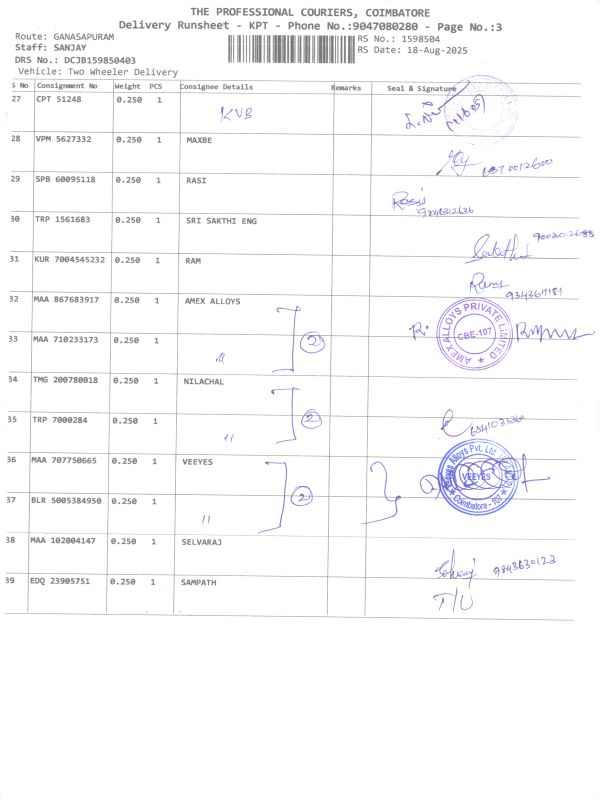 THE PROFESSIONAL COURIERS, COIMBATORE
Delivery Runsheet - KPT - Phone No.:9047080280 - Page No.:3
Route: GANASAPURAM
RS No.: 1598504
Staff: SANJAY
RS Date: 18-Aug-2025
DRS No.: DCJB159850403
Vehicle: Two Wheeler Delivery
S No Consignment No Weight PCS Consignee Details Remarks Seal & Signature
27 CPT 51248 0.250 1 KVB
28 VPM 5627332 0.250 1 MAXBE
29 SPB 60095118 0.250 1 RASI
30 TRP 1561683 0.250 1 SRI SAKTHI ENG
31 KUR 7004545232 0.250 1 RAM
Ram
32 MAA 867683917 0.250 1 AMEX ALLOYS
AMEX ALLOYS PRIVATE LIMITED
CBE-107
33 MAA 710233173 0.250 1 〃 2
34 TMG 200780018 0.250 1 NILACHAL
2
35 TRP 7000284 0.250 1 〃
36 MAA 707750665 0.250 1 VEEYES
VEEYES
Coimbatore - 107
2
37 BLR 5005384950 0.250 1 〃
38 MAA 102004147 0.250 1 SELVARAJ
9843630123
39 EDQ 23905751 0.250 1 SAMPATH
T/U